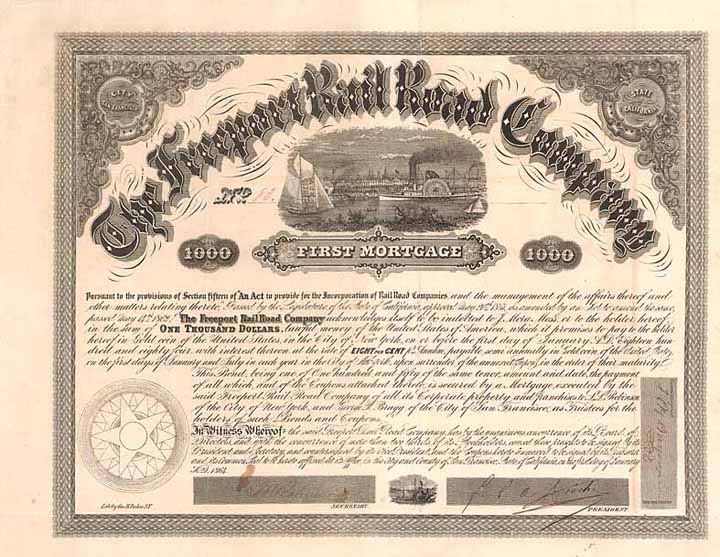 CITY
SAN FRANCISCO
STATE
CALIFORNIA
The Freeport Rail Road Company
No.
1000
FIRST MORTGAGE
1000
Pursuant to the provisions of Section fifteen of An Act to provide for the Incorporation of Rail Road Companies and the management of the affairs thereof and
other matters relating thereto, Passed by the Legislature of the State of California, approved May as amended by an Act to amend the same,
passed May 14th 1862, The Freeport Rail Road Company acknowledges itself to be indebted to J. Mora Moss, or to the holder hereof,
in the sum of ONE THOUSAND DOLLARS, lawful money of the United States of America, which it promises to pay to the holder
hereof in Gold coin of the United States, in the City of New York, on or before the first day of January A.D. Eighteen hun
dred and eighty four, with interest thereon at the rate of EIGHT PER CENT per Annum, payable semi annually in Gold coin of the United States,
on the first days of January and July in each year in the City of New York, upon surrender of the annexed Coupons, in the order of their maturity.
This Bond, being one of One hundred and fifty of the same tenor, amount and date, the payment
of all which, and of the Coupons attached thereto, is secured by a Mortgage, executed by the
said Freeport Rail Road Company, of all its Corporate property and franchises to L. L. Robinson
of the City of New York, and Bragg of the City of San Francisco, as Trustees for the
holders of such Bonds and Coupons.
In Witness Whereof the said Freeport Rail Road Company, has by the unanimous concurrence of its Board of
Directors, and with the concurrence of more than two thirds of its Stockholders, caused these presents to be signed by its
President and Secretary, and countersigned by its Vice President, and the Coupons hereto annexed to be signed by its Secretary
and its Common Seal to be hereto affixed at its office, in the City and County of San Francisco, State of California, on the first day of January
A.D. 1864.
SECRETARY.
PRESIDENT
Lith. by Geo. H. Baker S.F.